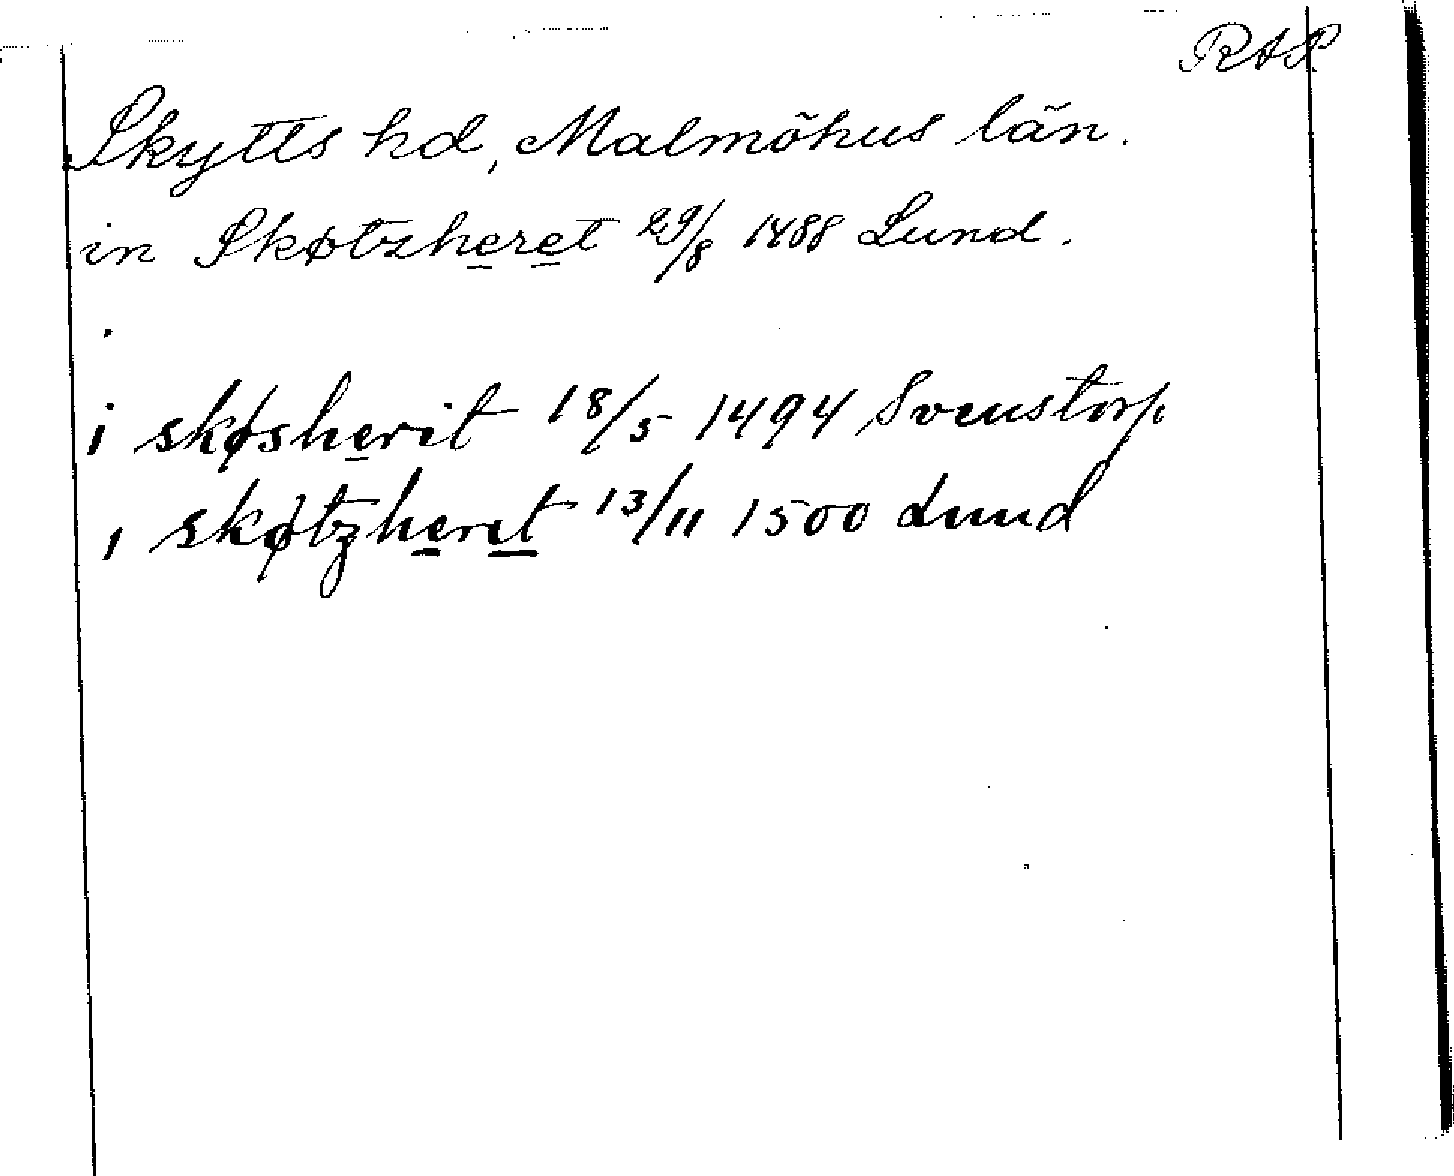 RAP
Skytts hd, Malmöhus län.
in Skøtzheret 29/8 1488 Lund.
i skøsherit 18/5 1494 Svenstorp
i skøtzheret 13/11 1500 Lund